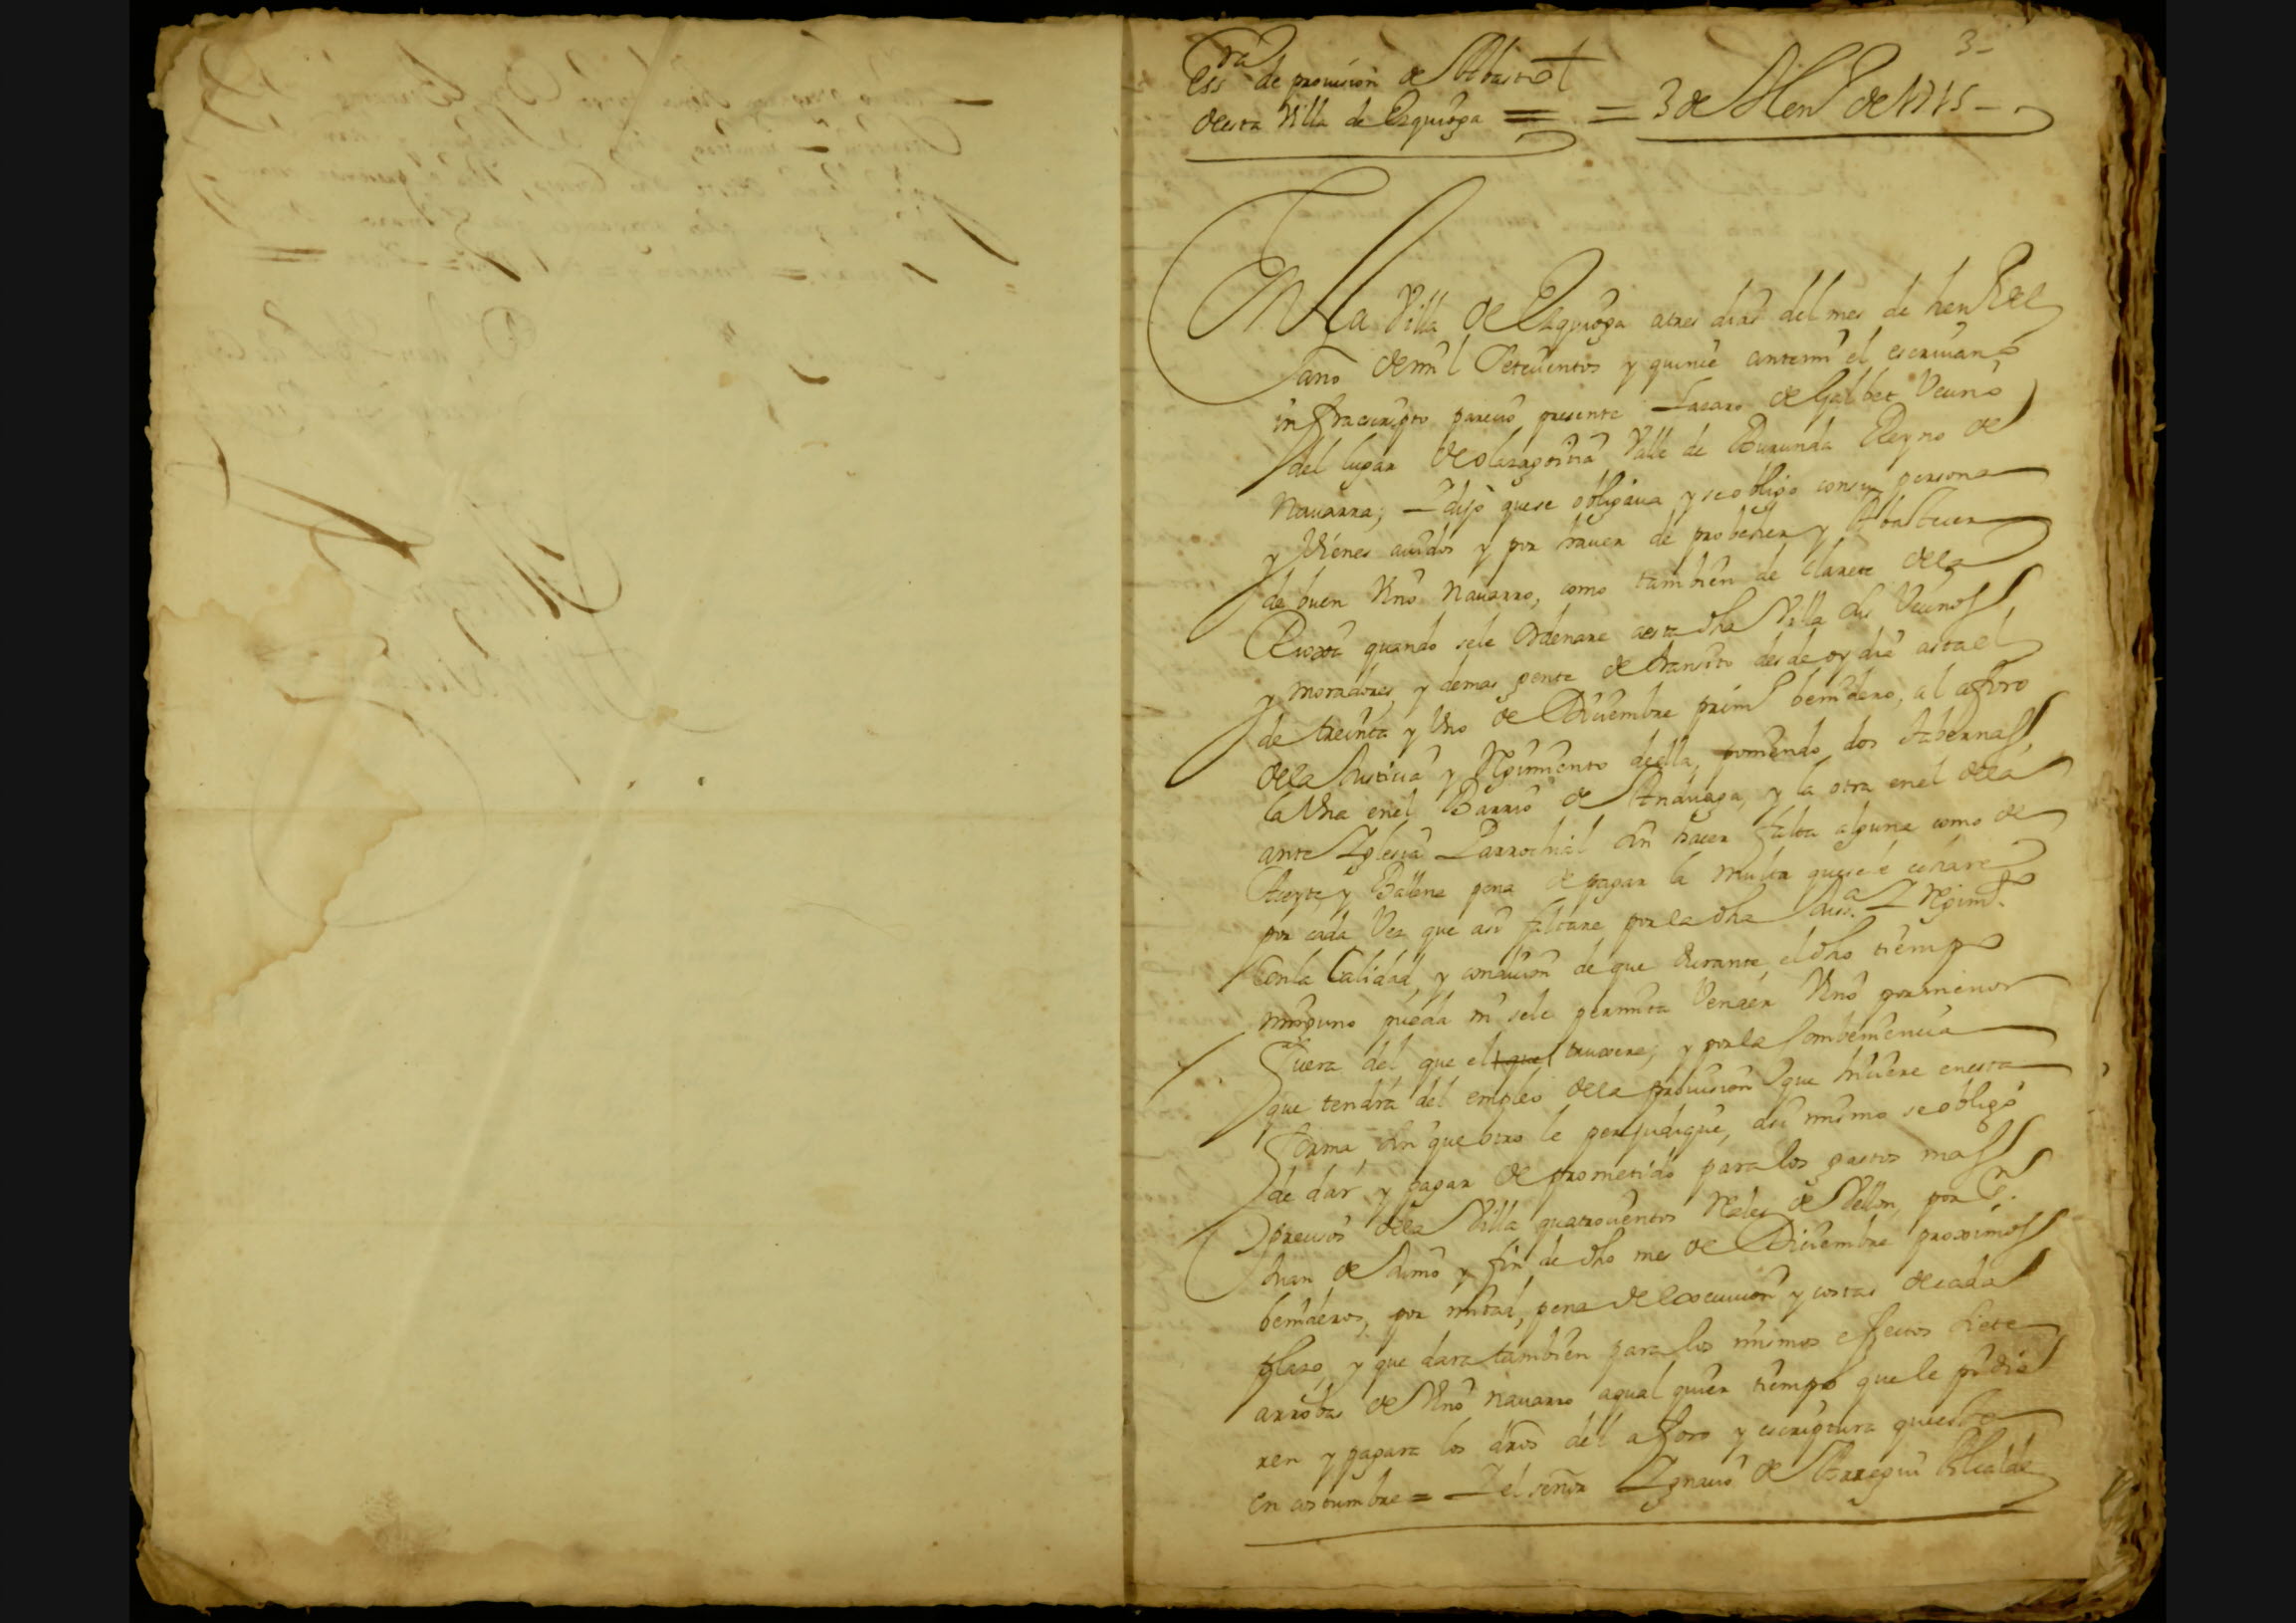 3-
Essra de provision de Abasto
desta Villa de Ezquioga = = 3 de Henº de 1715-
En la Villa de Ezquioga a tres dias del mes de henº del
año de mil Setecientos y quince antemi el escrivano
infraescripto parecio presente Lazaro de Galbet Vecino
del lugar de olazagoitia Valle de Burunda Reyno de
Navarra; I dijo que se obligava y se obligo consu persona
y Vienes avidos y por haver de probeher y Abastecer
de buen Vino Navarro, como tambien de clarete dela
Rioxa quando sele Ordenare aesta dha Villa sus Vecinos
y moradores y demas gente de transito desde oy dia astael
de treinta y Uno de Diciembre primº benidero, al aforo
dela Justicia y Rejimiento della, poniendo dos tabernas
la Una enel Barrio de Anduaga, y la otra enel dela
ante Iglesia Parrochial sin hacer falta alguna como de
Azeyte y Ballena pena de pagar la multa quesele echare
por cada Vez que asi faltare porla dha Jusª I Rejimto.
Conla Calidad, y condicion de que durante el dho tiempo
ninguno pueda ni sele permita Vender Vino pormenor
fuera del que el que truxere; y porla Combeniencia
que tendra del empleo dela provision que hiciere enesta
forma sin que otro le perjudique, asi mismo se obligó
de dar y pagar de prometido para los gastos mas
precisos dela Villa quatrocientos Reales de Vellon, por Sn.
Juan de Junio y fin de dho mes de Diciembre proximos
benideros, por mitad, pena de execucion y costas decada
plazo, y que dara tambien para los mismos effectos siete
arrobas de Vino navarro aqual quier tiempo que le pidie
ren y pagara los dros del aforo y escriptura que esta
en costumbre = I el señor Ignacio de Arregui Alcalde